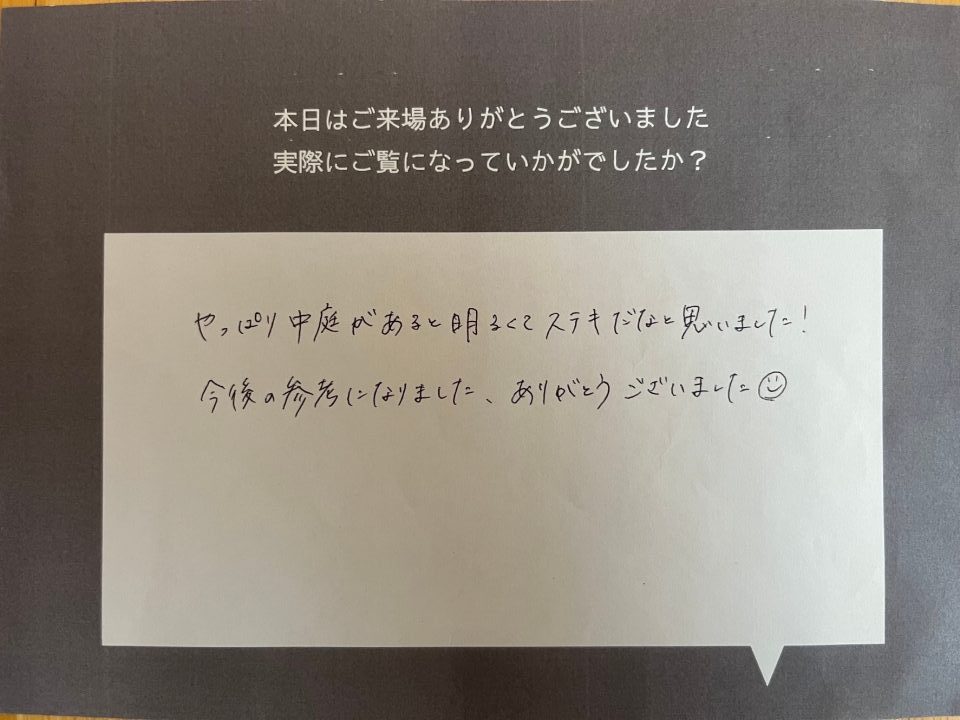 本日はご来場ありがとうございました
実際にご覧になっていかがでしたか？
やっぱり中庭があると明るくてステキだなと思いました！
今後の参考になりました、ありがとうございました☺